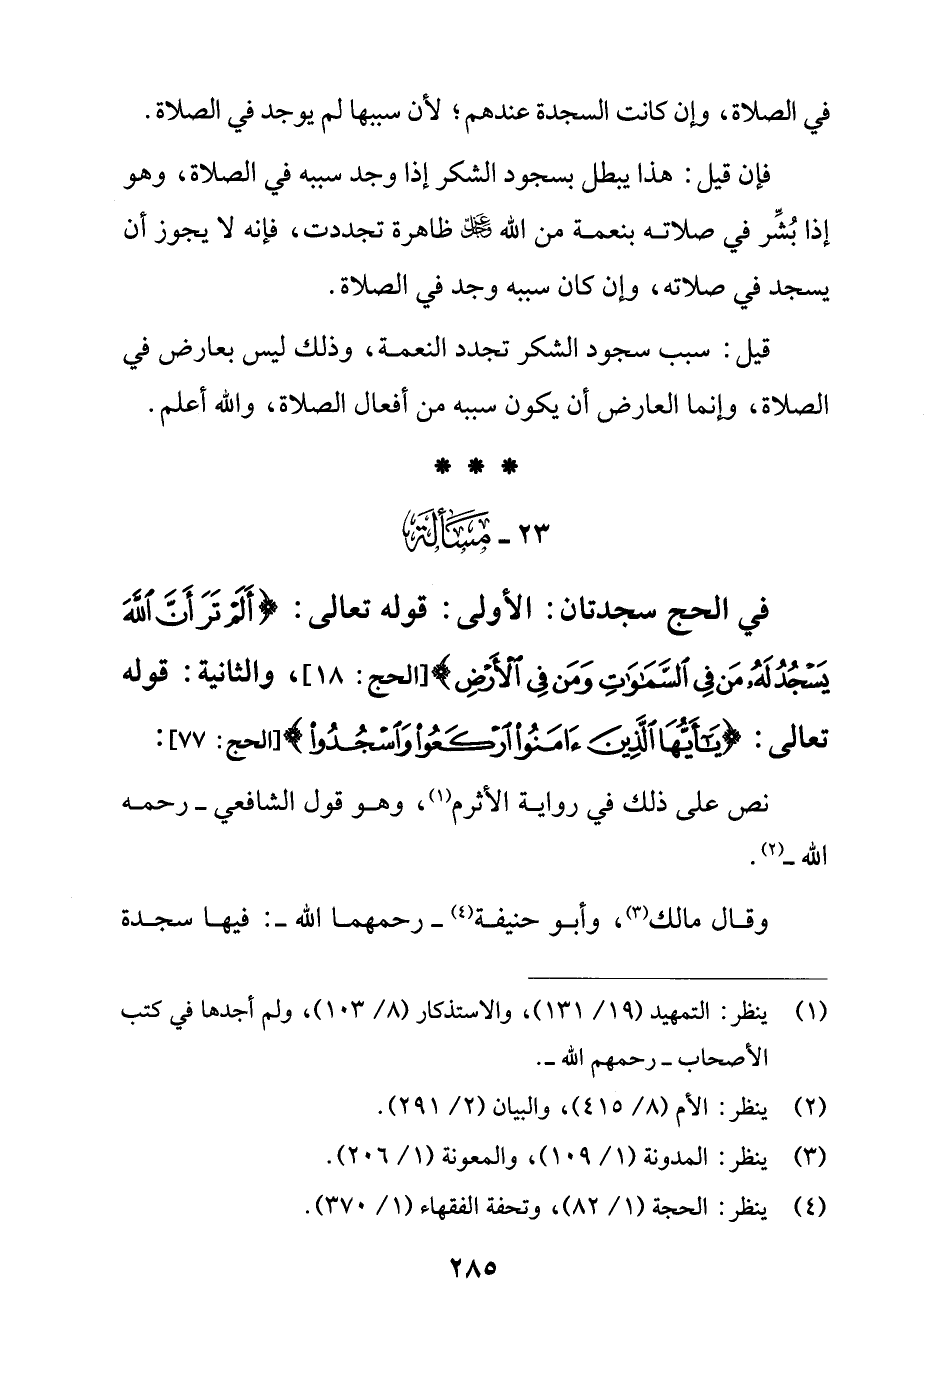 في الصلاة، وإن كانت السجدة عندهم؛ لأن سببها لم يوجد في الصلاة.
فإن قيل: هذا يبطل بسجود الشكر إذا وجد سببه في الصلاة، وهو
إذا بُشِّر في صلاته بنعمة من الله ﷿ ظاهرة تجددت، فإنه لا يجوز أن
يسجد في صلاته، وإن كان سببه وجد في الصلاة.
قيل: سبب سجود الشكر تجدد النعمة، وذلك ليس بعارض في
الصلاة، وإنما العارض أن يكون سببه من أفعال الصلاة، والله أعلم.
* * *
٢٣ - مَسْأَلَة
في الحج سجدتان: الأولى: قوله تعالى: ﴿أَلَمْ تَرَ أَنَّ ٱللَّهَ
يَسْجُدُ لَهُۥ مَن فِى ٱلسَّمَٰوَٰتِ وَمَن فِى ٱلْأَرْضِ﴾ [الحج: ١٨]، والثانية: قوله
تعالى: ﴿يَٰٓأَيُّهَا ٱلَّذِينَ ءَامَنُوا۟ ٱرْكَعُوا۟ وَٱسْجُدُوا۟﴾ [الحج: ٧٧]:
نص على ذلك في رواية الأثرم(١)، وهو قول الشافعي ـ رحمه
الله ـ(٢).
وقال مالك(٣)، وأبو حنيفة(٤) ـ رحمهما الله ـ: فيها سجدة
(١) ينظر: التمهيد (١٩/ ١٣١)، والاستذكار (٨/ ١٠٣)، ولم أجدها في كتب
الأصحاب ـ رحمهم الله ـ.
(٢) ينظر: الأم (٨/ ٤١٥)، والبيان (٢/ ٢٩١).
(٣) ينظر: المدونة (١/ ١٠٩)، والمعونة (١/ ٢٠٦).
(٤) ينظر: الحجة (١/ ٨٢)، وتحفة الفقهاء (١/ ٣٧٠).
٢٨٥